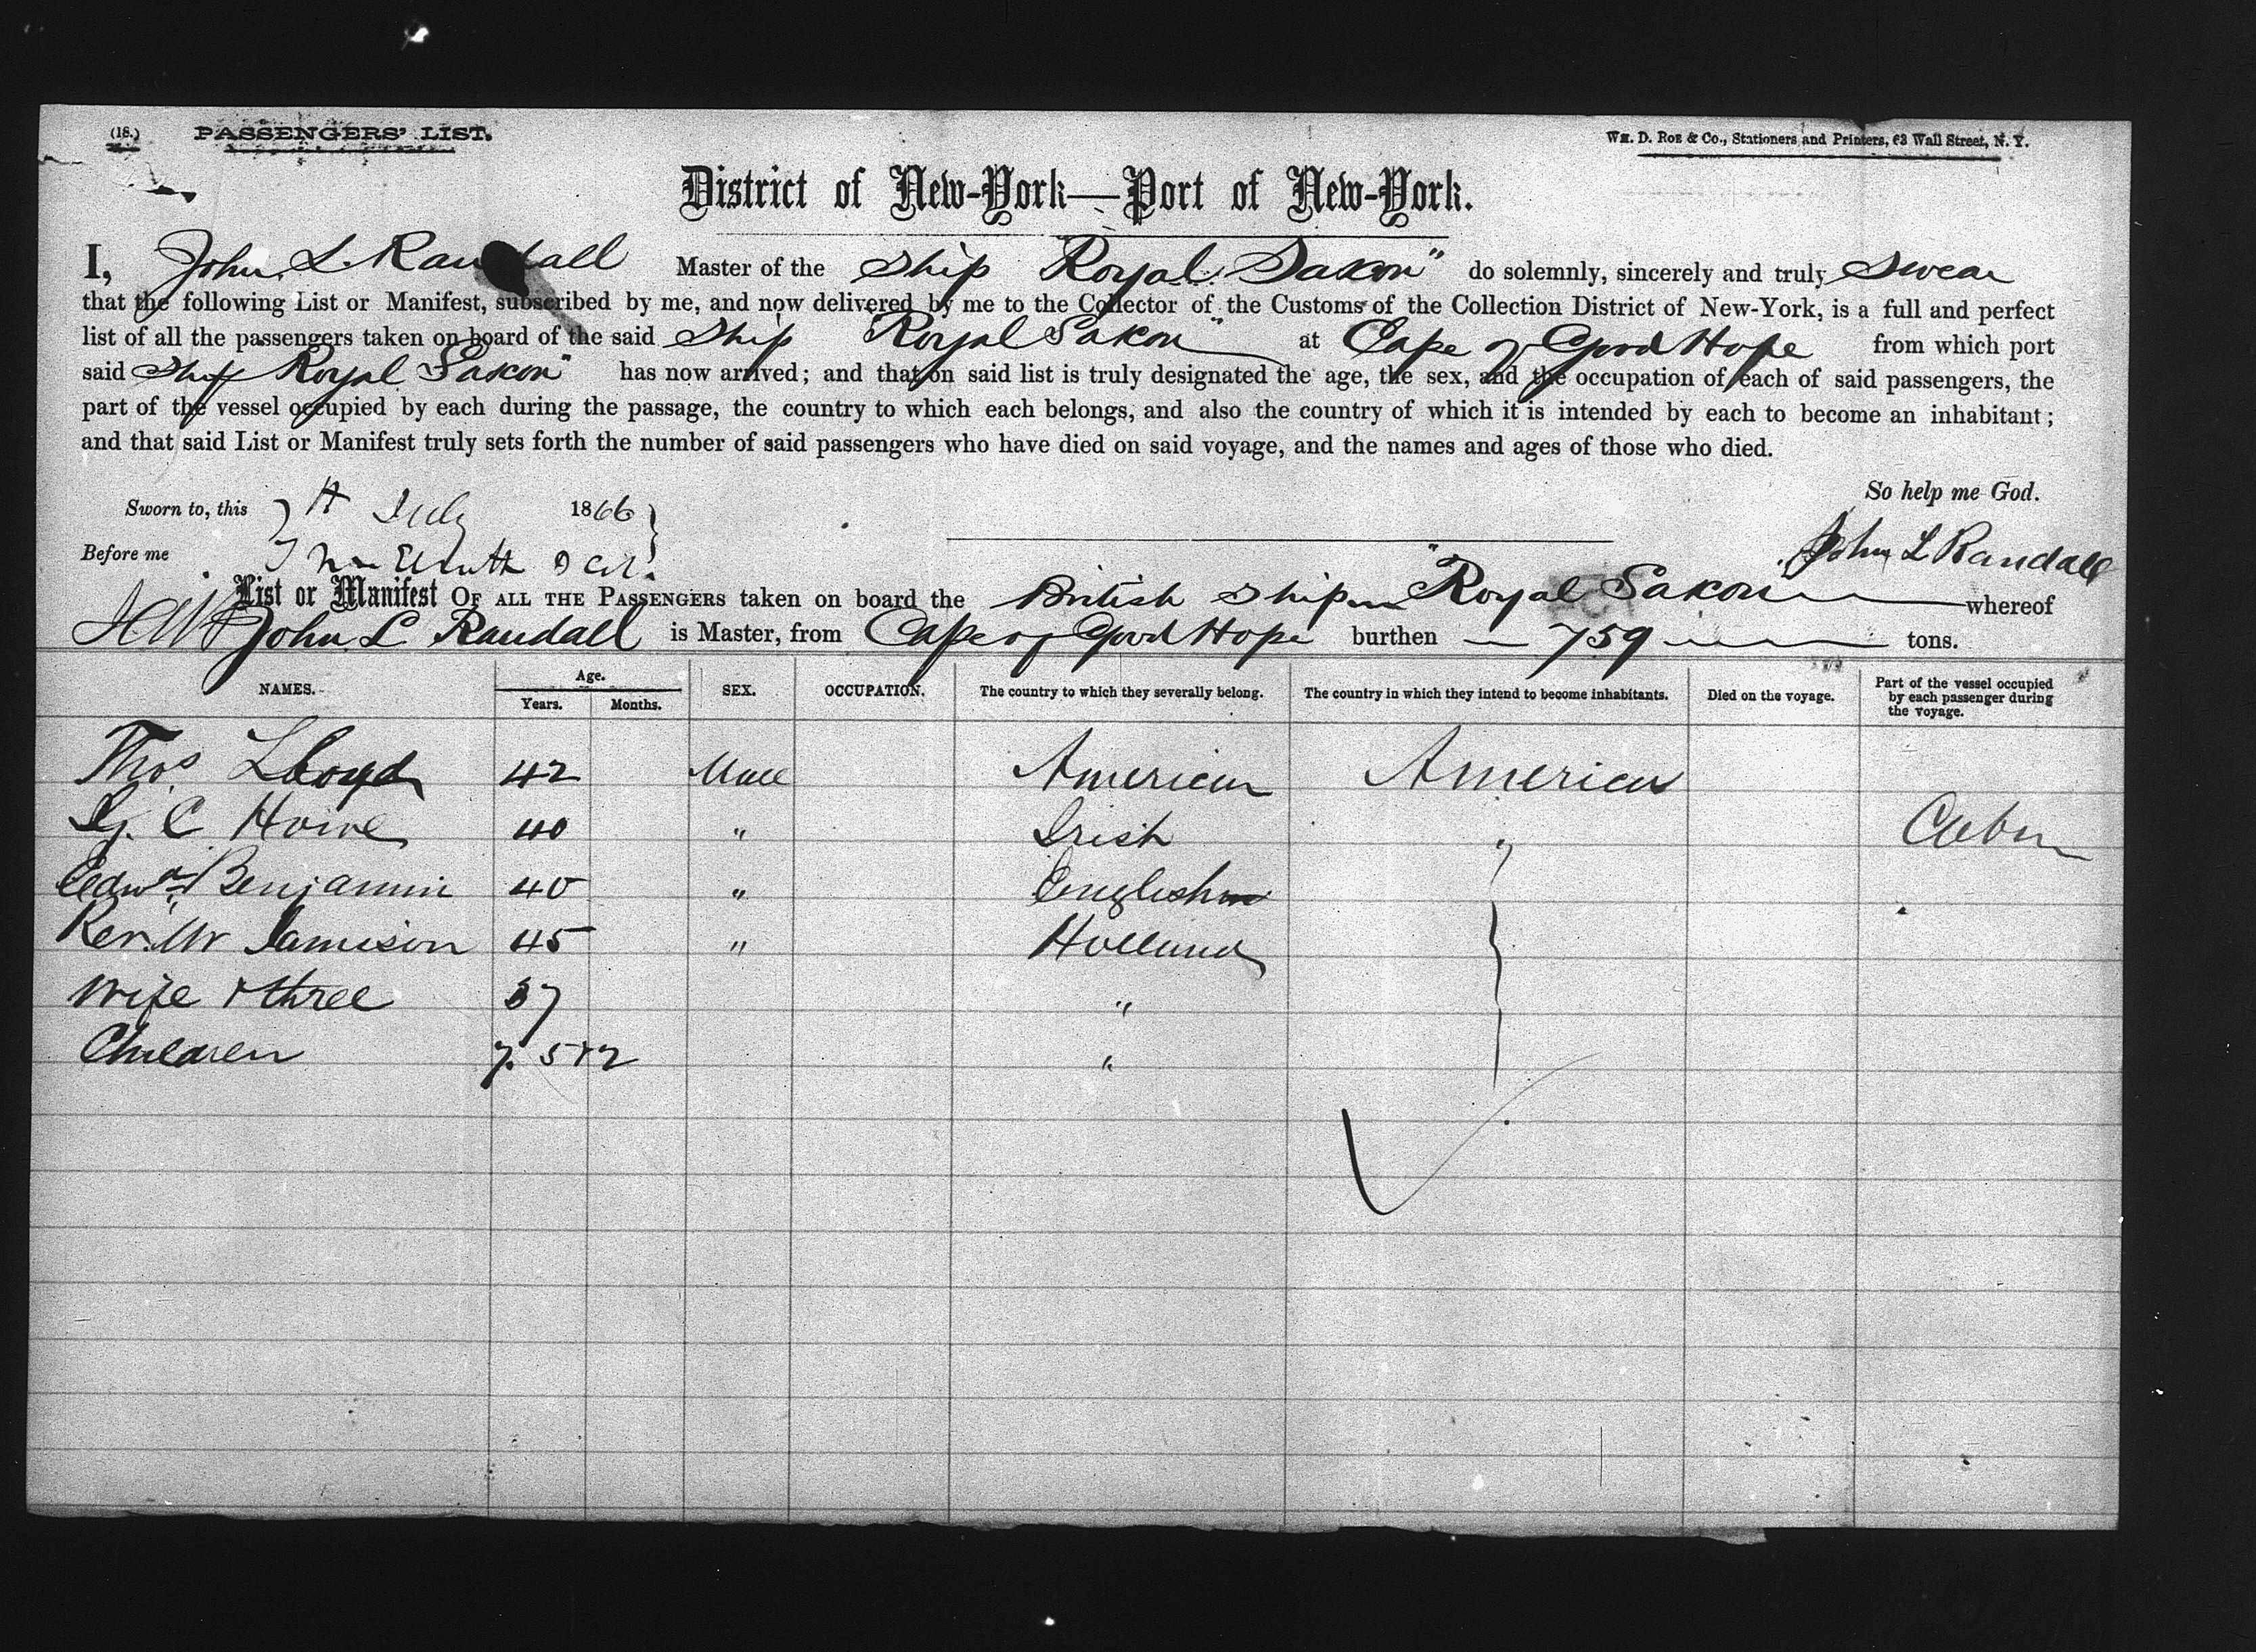 (18.) PASSENGERS' LIST. Wm. D. Roe & Co., Stationers and Printers, 63 Wall Street, N. Y.
District of New-York—Port of New-York.
I, John L. Randall Master of the Ship "Royal Saxon" do solemnly, sincerely and truly Swear
that the following List or Manifest, subscribed by me, and now delivered by me to the Collector of the Customs of the Collection District of New-York, is a full and perfect
list of all the passengers taken on board of the said Ship "Royal Saxon" at Cape of Good Hope from which port
said Ship Royal Saxon" has now arrived; and that on said list is truly designated the age, the sex, and the occupation of each of said passengers, the
part of the vessel occupied by each during the passage, the country to which each belongs, and also the country of which it is intended by each to become an inhabitant;
and that said List or Manifest truly sets forth the number of said passengers who have died on said voyage, and the names and ages of those who died.
So help me God.
Sworn to, this July 1866
John L Randall
Before me
List or Manifest OF ALL THE PASSENGERS taken on board the British Ship "Royal Saxon" whereof
John L Randall is Master, from Cape of Good Hope burthen 759 tons.
NAMES. Age. Years. Months. SEX. OCCUPATION. The country to which they severally belong. The country in which they intend to become inhabitants. Died on the voyage. Part of the vessel occupied by each passenger during the voyage.
Thos Lloyd 42 Male American America
C 40 " Irish " Cabin
Edwd Benjamin 40 " English
Rev. Mr Jamison 45 " Holland
Wife & three 37 "
Children 7. 5 & 2 "